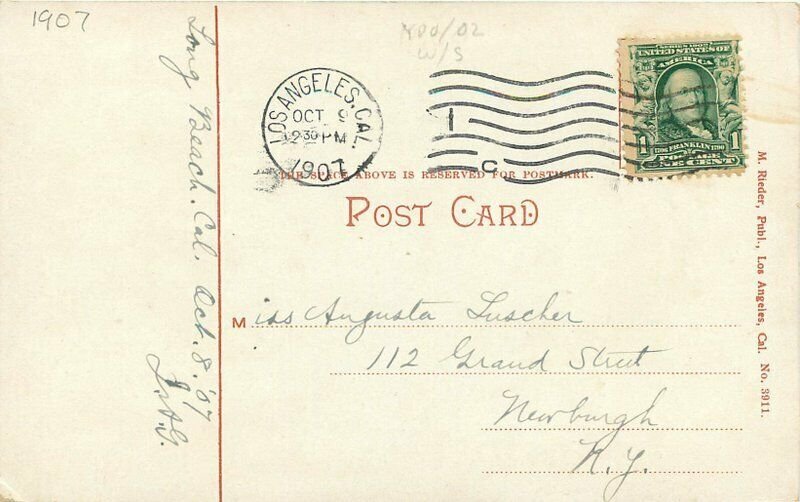 1907
Long Beach. Cal. Oct. 8. '07
J. A. G.
LOS ANGELES, CAL.
OCT 9
12 30 PM
1907
1
C
SERIES 1902
UNITED STATES OF
AMERICA
1 1706 FRANKLIN 1790 1
POSTAGE
ONE CENT
THE SPACE ABOVE IS RESERVED FOR POSTMARK.
POST CARD
Miss Augusta Luscher
112 Grand Street
Newburgh
N.Y.
M. Rieder, Publ., Los Angeles, Cal. No. 3911.